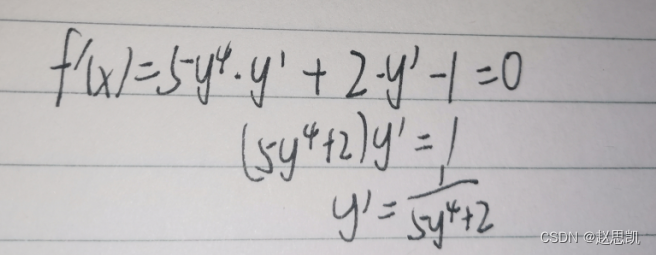 f'(x)=5y⁴·y'+2·y'-1=0
(5y⁴+2)y'=1
y'=1/(5y⁴+2)
CSDN @赵思凯